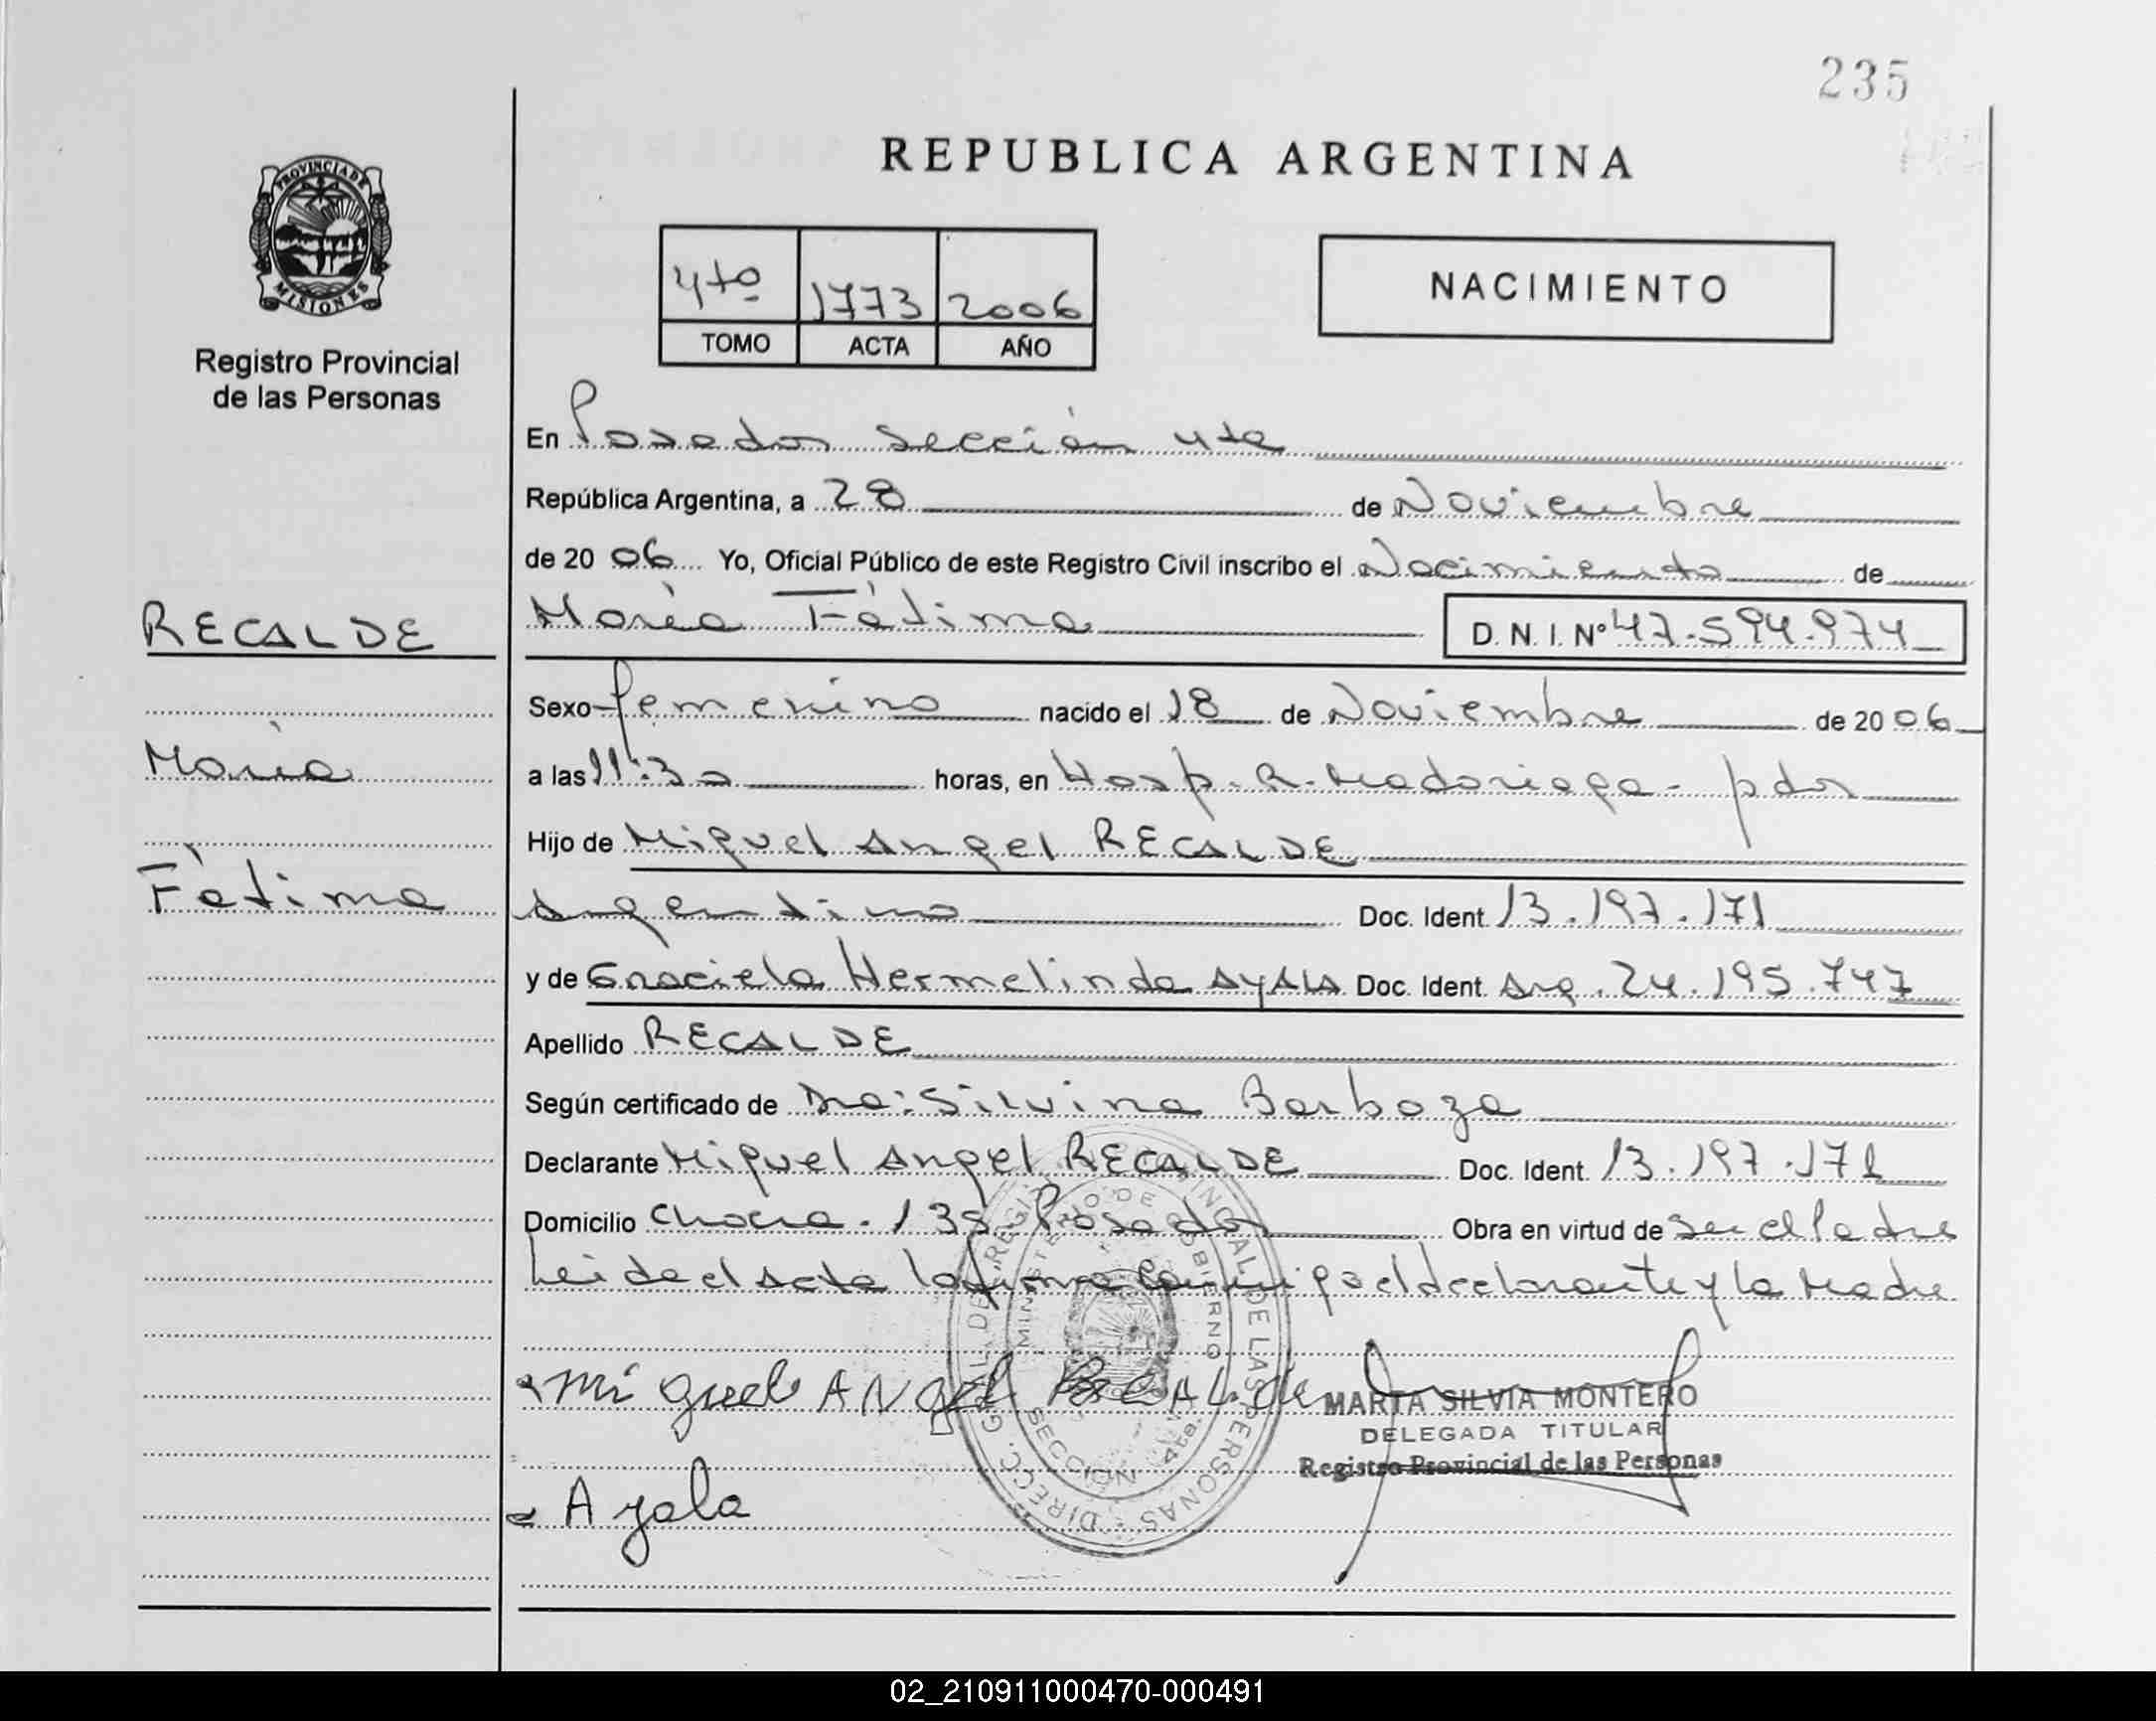 235
REPUBLICA ARGENTINA
PROVINCIA DE
MISIONES
Registro Provincial
de las Personas
4to 1773 2006
TOMO ACTA AÑO
NACIMIENTO
En Posadas Sección 4ta
República Argentina, a 28 de Noviembre
de 20 06 Yo, Oficial Público de este Registro Civil inscribo el Nacimiento de
RECALDE
María Fátima D. N. I. Nº 47.594.974
Sexo femenino nacido el 18 de Noviembre de 20 06
María
a las 11:30 horas, en Hosp. R. Madariaga - pdas
Hijo de Miguel Angel RECALDE
Fátima
Argentino Doc. Ident. 13.197.171
y de Graciela Hermelinda AyALA Doc. Ident. Arg. 24.195.747
Apellido RECALDE
Según certificado de Dra: Silvina Barboza
Declarante Miguel Angel RECALDE Doc. Ident. 13.197.171
Domicilio Chacra. 135 Posadas Obra en virtud de Ser el Padre
Leida el Acta la firma conmigo el declarante y la Madre
Miguel ANgel RecALde
MARTA SILVIA MONTERO
DELEGADA TITULAR
Registro Provincial de las Personas
Ayala
DIRECC. GRAL. DEL REGIS PROVINCIAL DE LAS PERSONAS
MINISTERIO DE GOBIERNO
SECCION 4ta.
02_210911000470-000491